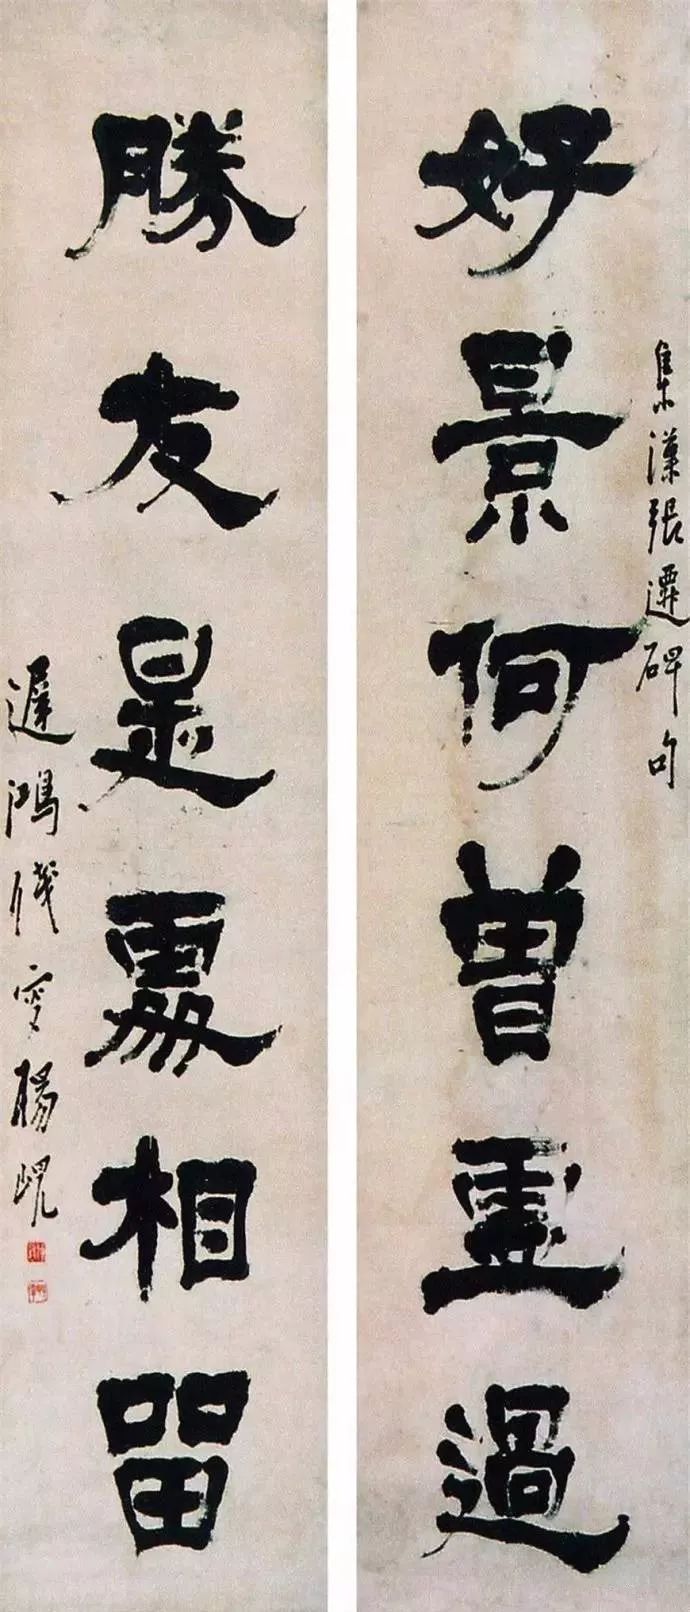 集漢張遷碑句
好景何曾虛過
勝友是處相留
遲鴻殘叟楊峴